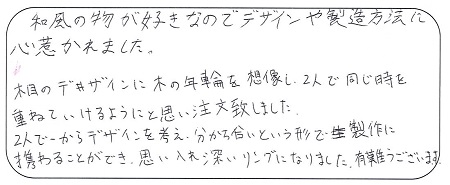 和風の物が好きなのでデザインや製造方法に
心惹かれました。
木目のデザインに木の年輪を想像し、2人で同じ時を
重ねていけるようにと思い注文致しました。
2人で一からデザインを考え、分かち合いという形で製作に
携わることができ、思い入れ深いリングになりました。有難うございます